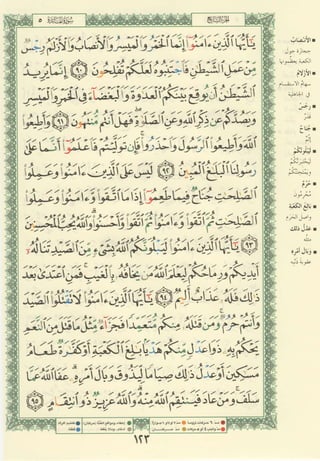 الجزء السابع
سورة المائدة ٥
يَـٰٓأَيُّهَا ٱلَّذِينَ ءَامَنُوٓا۟ إِنَّمَا ٱلْخَمْرُ وَٱلْمَيْسِرُ وَٱلْأَنصَابُ وَٱلْأَزْلَـٰمُ رِجْسٌ
مِّنْ عَمَلِ ٱلشَّيْطَـٰنِ فَٱجْتَنِبُوهُ لَعَلَّكُمْ تُفْلِحُونَ ٩٠ إِنَّمَا يُرِيدُ
ٱلشَّيْطَـٰنُ أَن يُوقِعَ بَيْنَكُمُ ٱلْعَدَٰوَةَ وَٱلْبَغْضَآءَ فِى ٱلْخَمْرِ وَٱلْمَيْسِرِ
وَيَصُدَّكُمْ عَن ذِكْرِ ٱللَّهِ وَعَنِ ٱلصَّلَوٰةِ فَهَلْ أَنتُم مُّنتَهُونَ ٩١ وَأَطِيعُوا۟
ٱللَّهَ وَأَطِيعُوا۟ ٱلرَّسُولَ وَٱحْذَرُوا۟ فَإِن تَوَلَّيْتُمْ فَٱعْلَمُوٓا۟ أَنَّمَا عَلَىٰ
رَسُولِنَا ٱلْبَلَـٰغُ ٱلْمُبِينُ ٩٢ لَيْسَ عَلَى ٱلَّذِينَ ءَامَنُوا۟ وَعَمِلُوا۟
ٱلصَّـٰلِحَـٰتِ جُنَاحٌ فِيمَا طَعِمُوٓا۟ إِذَا مَا ٱتَّقَوا۟ وَّءَامَنُوا۟ وَعَمِلُوا۟
ٱلصَّـٰلِحَـٰتِ ثُمَّ ٱتَّقَوا۟ وَّءَامَنُوا۟ ثُمَّ ٱتَّقَوا۟ وَّأَحْسَنُوا۟ وَٱللَّهُ يُحِبُّ ٱلْمُحْسِنِينَ
٩٣ يَـٰٓأَيُّهَا ٱلَّذِينَ ءَامَنُوا۟ لَيَبْلُوَنَّكُمُ ٱللَّهُ بِشَىْءٍ مِّنَ ٱلصَّيْدِ تَنَالُهُۥٓ
أَيْدِيكُمْ وَرِمَاحُكُمْ لِيَعْلَمَ ٱللَّهُ مَن يَخَافُهُۥ بِٱلْغَيْبِ فَمَنِ ٱعْتَدَىٰ بَعْدَ
ذَٰلِكَ فَلَهُۥ عَذَابٌ أَلِيمٌ ٩٤ يَـٰٓأَيُّهَا ٱلَّذِينَ ءَامَنُوا۟ لَا تَقْتُلُوا۟ ٱلصَّيْدَ
وَأَنتُمْ حُرُمٌ وَمَن قَتَلَهُۥ مِنكُم مُّتَعَمِّدًا فَجَزَآءٌ مِّثْلُ مَا قَتَلَ مِنَ ٱلنَّعَمِ
يَحْكُمُ بِهِۦ ذَوَا عَدْلٍ مِّنكُمْ هَدْيًۢا بَـٰلِغَ ٱلْكَعْبَةِ أَوْ كَفَّـٰرَةٌ طَعَامُ
مَسَـٰكِينَ أَوْ عَدْلُ ذَٰلِكَ صِيَامًا لِّيَذُوقَ وَبَالَ أَمْرِهِۦ عَفَا ٱللَّهُ عَمَّا
سَلَفَ وَمَنْ عَادَ فَيَنتَقِمُ ٱللَّهُ مِنْهُ وَٱللَّهُ عَزِيزٌ ذُو ٱنتِقَامٍ ٩٥
١٢٣
الأنصاب
حجارة حول
الكعبة يعظمونها
الأزلام
رجس
قذر
جناح
إثم
ليبلونكم
حرم
محرمون
بالغ الكعبة
واصل الحرم
عدل ذلك
مثله
وبال أمره